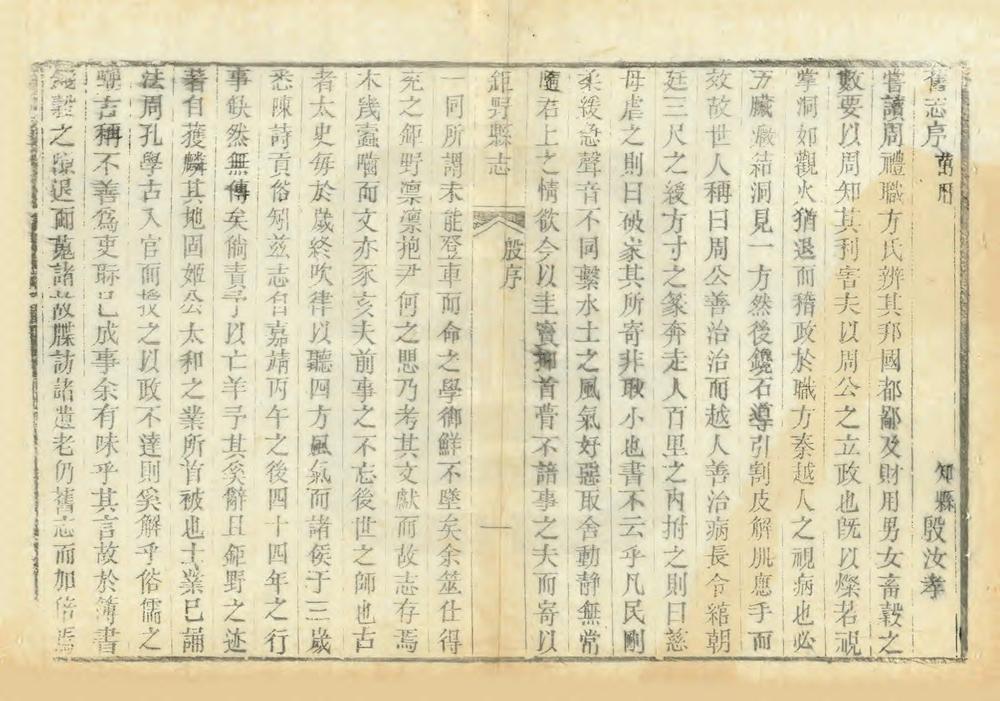 舊志序 萬曆 知縣殷汝孝
嘗讀周禮職方氏辨其邦國都鄙及財用男女畜穀之
數要以周知其利害夫以周公之立政也旣以燦若視
掌洞如觀火猶退而稽政於職方秦越人之視病也必
五臟癥結洞見一方然後鑱石導引割皮解肌應手而
效故世人稱曰周公善治治而越人善治病長令綰朝
廷三尺之綬方寸之篆奔走人百里之內拊之則曰慈
母虐之則曰破家其所寄非耿小也書不云乎凡民剛
柔緩急聲音不同繫水土之風氣好惡取舍動靜無常
隨君上之情欲今以圭竇抑首瞢不諳事之夫而寄以
鉅野縣志 殷序 一
一同所謂未能登車而命之學御鮮不墜矣余筮仕得
兗之鉅野凛凛抱尹何之思乃考其文獻而故志存焉
木歲蠹囓而文亦豕亥夫前事之不忘後世之師也古
者太史每於歲終吹律以聽四方風氣而諸侯于三歲
悉陳詩貢俗矧茲志自嘉靖丙午之後四十四年之行
事缺然無傳矣倘責予以亡羊予其奚辭且鉅野之迹
著自獲麟其地固姬公太和之業所首被也士業已誦
法周孔學古入官而授之以政不達則奚解乎俗儒之
韓吉稱不善爲吏眎已成事余有味乎其言故於簿書
錢穀之隙退而蒐諸故牒訪諸遺老仍舊志而加倍焉